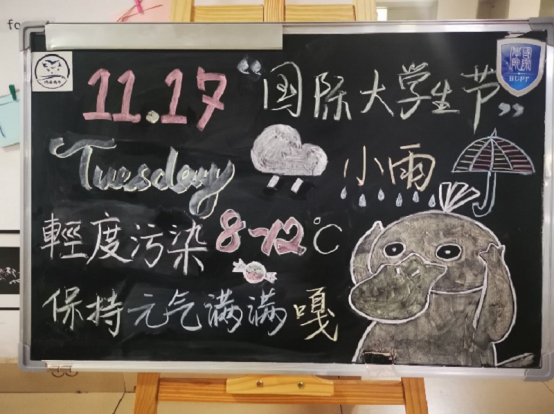 fo
11.17 “国际大学生节”
BUPT
Tuesday 小雨
輕度污染 8-12℃
保持元气满满嘎